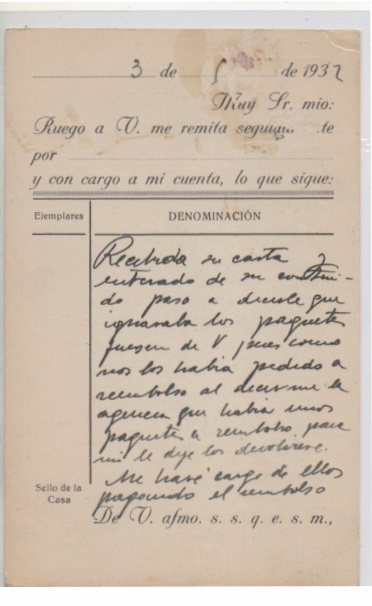 3 de 5 de 1932
Muy Sr. mio:
Ruego a V. me remita te
por
y con cargo a mi cuenta, lo que sigue:
Ejemplares
DENOMINACIÓN
Recibida su carta y
enterado de su conteni-
do paso a decirle que
ignoraba los paquetes
fuesen de V pues como
nos los habia pedido a
reembolso al decirme la
agencia que habia unos
paquetes a reembolso para
mi le dije los devolviese.
Me haré cargo de ellos
pagando el rembolso
Sello de la
Casa
De V. afmo. s. s. q. e. s. m.,